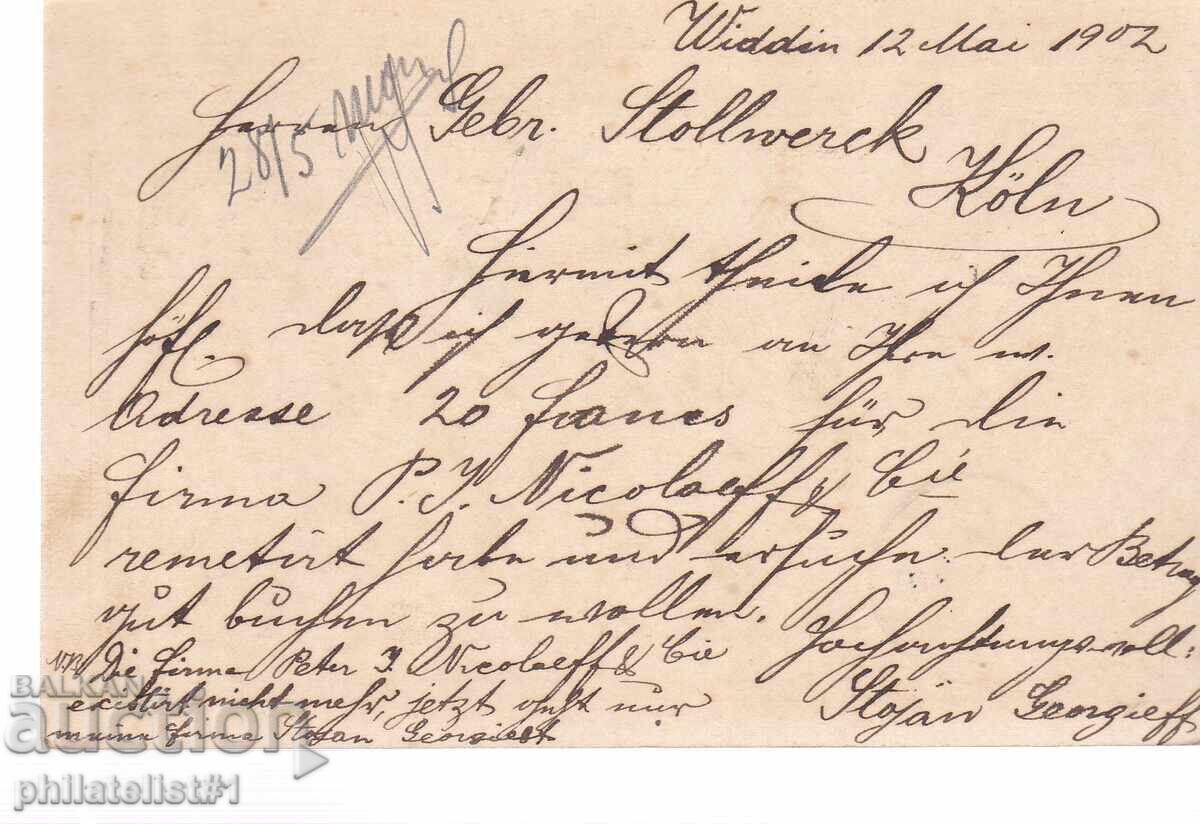 Widdin 12 Mai 1902
Herren Gebr. Stollwerck
28/5
Köln
Hiermit theile ich Ihnen
höfl. dass ich gestern an Ihre w.
Adresse 20 francs für die
Firma P. J. Nicolaeff & Cie
remetirt habe und ersuche den Betrag
gut buchen zu wollen.
Hochachtungsvoll
NB Die Firma Peter J. Nicolaeff & Cie
Stojan Georgieff
existirt nicht mehr, jetzt geht nur
meine Firma Stojan Georgieff
BALKAN
auction
philatelist#1